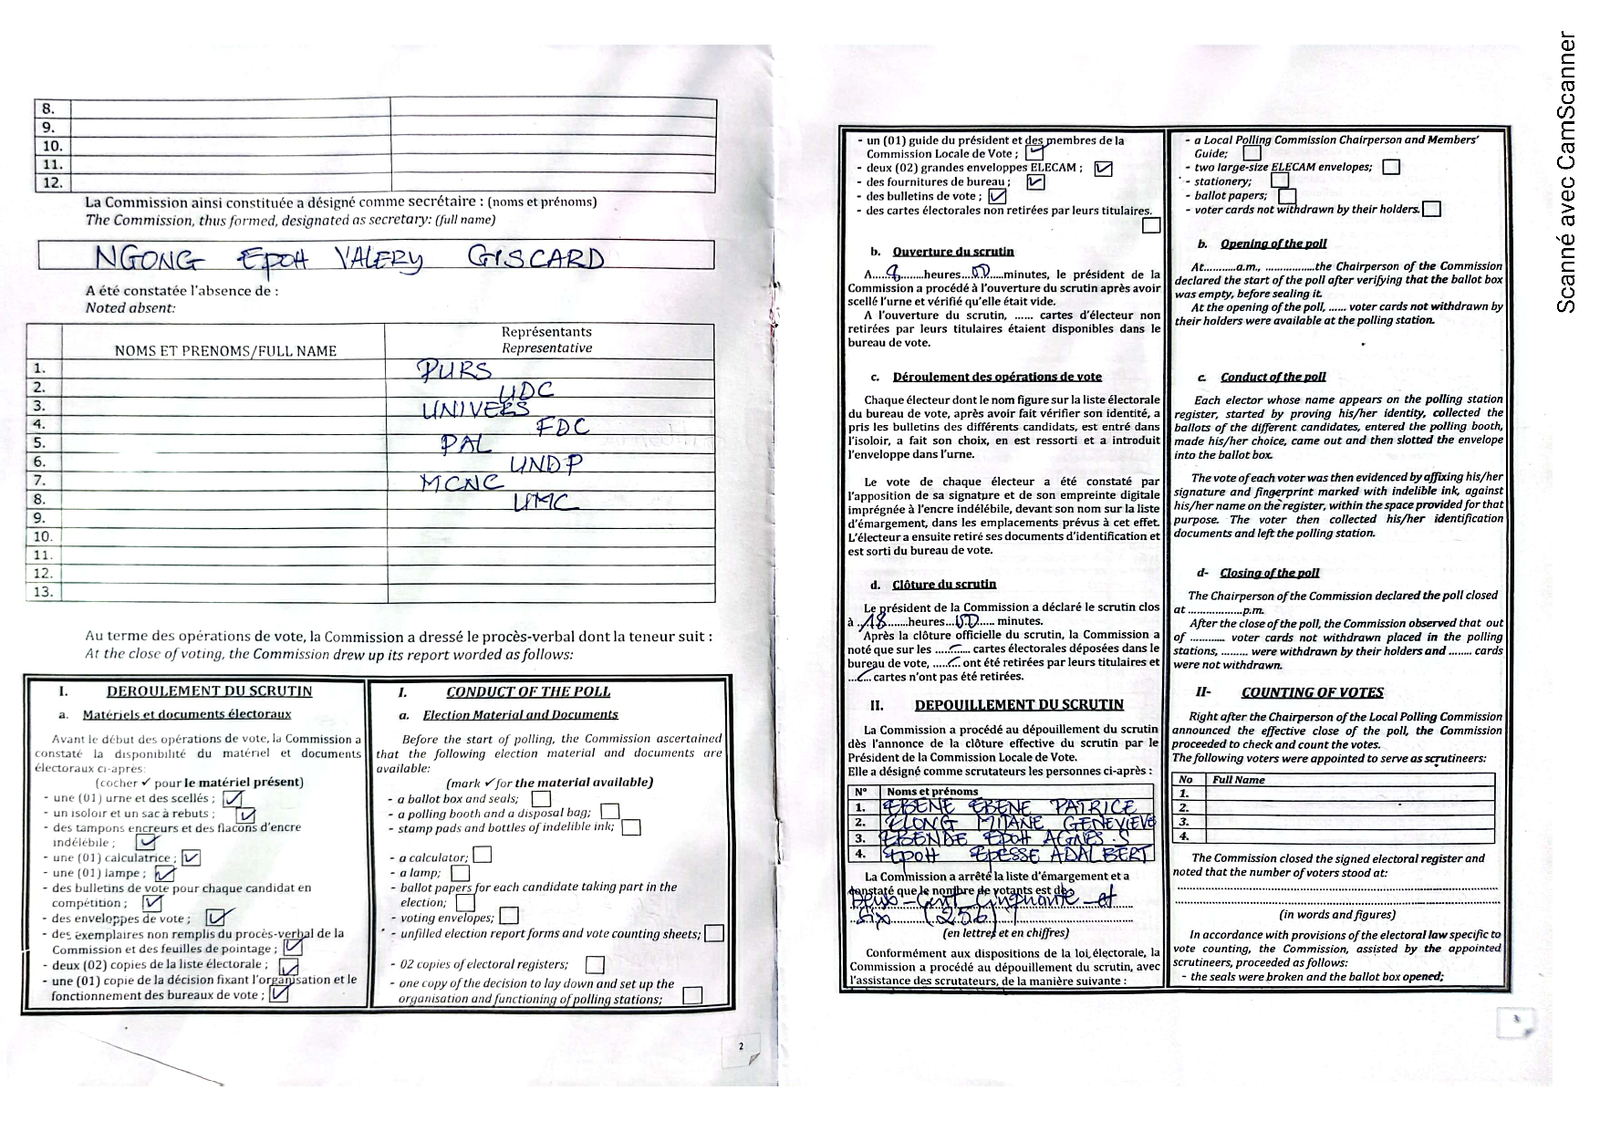 8.
9.
10.
11.
12.
La Commission ainsi constituée a désigné comme secrétaire : (noms et prénoms)
The Commission, thus formed, designated as secretary: (full name)
NGONG EPOH VALERY GISCARD
A été constatée l'absence de :
Noted absent:
NOMS ET PRENOMS/FULL NAME
Représentants
Representative
1. PURS
2. UDC
3. UNIVERS
4. FDC
5. PAL
6. UNDP
7. MCNC
8. UMC
9.
10.
11.
12.
13.
Au terme des opérations de vote, la Commission a dressé le procès-verbal dont la teneur suit :
At the close of voting, the Commission drew up its report worded as follows:
I. DEROULEMENT DU SCRUTIN
a. Matériels et documents électoraux
Avant le début des opérations de vote, la Commission a
constaté la disponibilité du matériel et documents
électoraux ci-après:
(cocher ✓ pour le matériel présent)
- une (01) urne et des scellés ; ☑
- un isoloir et un sac à rebuts ; ☑
- des tampons encreurs et des flacons d'encre
indélébile ; ☑
- une (01) calculatrice ; ☑
- une (01) lampe ; ☑
- des bulletins de vote pour chaque candidat en
compétition ; ☑
- des enveloppes de vote ; ☑
- des exemplaires non remplis du procès-verbal de la
Commission et des feuilles de pointage ; ☑
- deux (02) copies de la liste électorale ; ☑
- une (01) copie de la décision fixant l'organisation et le
fonctionnement des bureaux de vote ; ☑
I. CONDUCT OF THE POLL
a. Election Material and Documents
Before the start of polling, the Commission ascertained
that the following election material and documents are
available:
(mark ✓ for the material available)
- a ballot box and seals; ☐
- a polling booth and a disposal bag; ☐
- stamp pads and bottles of indelible ink; ☐
- a calculator; ☐
- a lamp; ☐
- ballot papers for each candidate taking part in the
election; ☐
- voting envelopes; ☐
- unfilled election report forms and vote counting sheets; ☐
- 02 copies of electoral registers; ☐
- one copy of the decision to lay down and set up the
organisation and functioning of polling stations; ☐
2
- un (01) guide du président et des membres de la
Commission Locale de Vote ; ☑
- deux (02) grandes enveloppes ELECAM ; ☑
- des fournitures de bureau ; ☑
- des bulletins de vote ; ☑
- des cartes électorales non retirées par leurs titulaires.
☐
b. Ouverture du scrutin
A....8......heures...00....minutes, le président de la
Commission a procédé à l'ouverture du scrutin après avoir
scellé l'urne et vérifié qu'elle était vide.
A l'ouverture du scrutin, ...... cartes d'électeur non
retirées par leurs titulaires étaient disponibles dans le
bureau de vote.
c. Déroulement des opérations de vote
Chaque électeur dont le nom figure sur la liste électorale
du bureau de vote, après avoir fait vérifier son identité, a
pris les bulletins des différents candidats, est entré dans
l'isoloir, a fait son choix, en est ressorti et a introduit
l'enveloppe dans l'urne.
Le vote de chaque électeur a été constaté par
l'apposition de sa signature et de son empreinte digitale
imprégnée à l'encre indélébile, devant son nom sur la liste
d'émargement, dans les emplacements prévus à cet effet.
L'électeur a ensuite retiré ses documents d'identification et
est sorti du bureau de vote.
d. Clôture du scrutin
Le président de la Commission a déclaré le scrutin clos
à ..18.....heures...00..... minutes.
Après la clôture officielle du scrutin, la Commission a
noté que sur les ......... cartes électorales déposées dans le
bureau de vote, ....... ont été retirées par leurs titulaires et
...... cartes n'ont pas été retirées.
II. DEPOUILLEMENT DU SCRUTIN
La Commission a procédé au dépouillement du scrutin
dès l'annonce de la clôture effective du scrutin par le
Président de la Commission Locale de Vote.
Elle a désigné comme scrutateurs les personnes ci-après :
N° Noms et prénoms
1. EBENE EBENE PATRICE
2. ELONG MIJANE GENEVIEVE
3. EBENDE EPOH AGNES S
4. EPOH EPESSE ADALBERT
La Commission a arrêté la liste d'émargement et a
constaté que le nombre de votants est de
Deux-Cent-Cinquante-et
Six (256)
(en lettres et en chiffres)
Conformément aux dispositions de la loi électorale, la
Commission a procédé au dépouillement du scrutin, avec
l'assistance des scrutateurs, de la manière suivante :
- a Local Polling Commission Chairperson and Members'
Guide; ☐
- two large-size ELECAM envelopes; ☐
- stationery; ☐
- ballot papers; ☐
- voter cards not withdrawn by their holders. ☐
b. Opening of the poll
At..........a.m., ................the Chairperson of the Commission
declared the start of the poll after verifying that the ballot box
was empty, before sealing it.
At the opening of the poll, ...... voter cards not withdrawn by
their holders were available at the polling station.
c. Conduct of the poll
Each elector whose name appears on the polling station
register, started by proving his/her identity, collected the
ballots of the different candidates, entered the polling booth,
made his/her choice, came out and then slotted the envelope
into the ballot box.
The vote of each voter was then evidenced by affixing his/her
signature and fingerprint marked with indelible ink, against
his/her name on the register, within the space provided for that
purpose. The voter then collected his/her identification
documents and left the polling station.
d- Closing of the poll
The Chairperson of the Commission declared the poll closed
at ..................p.m.
After the close of the poll, the Commission observed that out
of ........... voter cards not withdrawn placed in the polling
stations, ......... were withdrawn by their holders and ........ cards
were not withdrawn.
II- COUNTING OF VOTES
Right after the Chairperson of the Local Polling Commission
announced the effective close of the poll, the Commission
proceeded to check and count the votes.
The following voters were appointed to serve as scrutineers:
No Full Name
1.
2.
3.
4.
The Commission closed the signed electoral register and
noted that the number of voters stood at:
(in words and figures)
In accordance with provisions of the electoral law specific to
vote counting, the Commission, assisted by the appointed
scrutineers, proceeded as follows:
- the seals were broken and the ballot box opened;
3
Scanné avec CamScanner